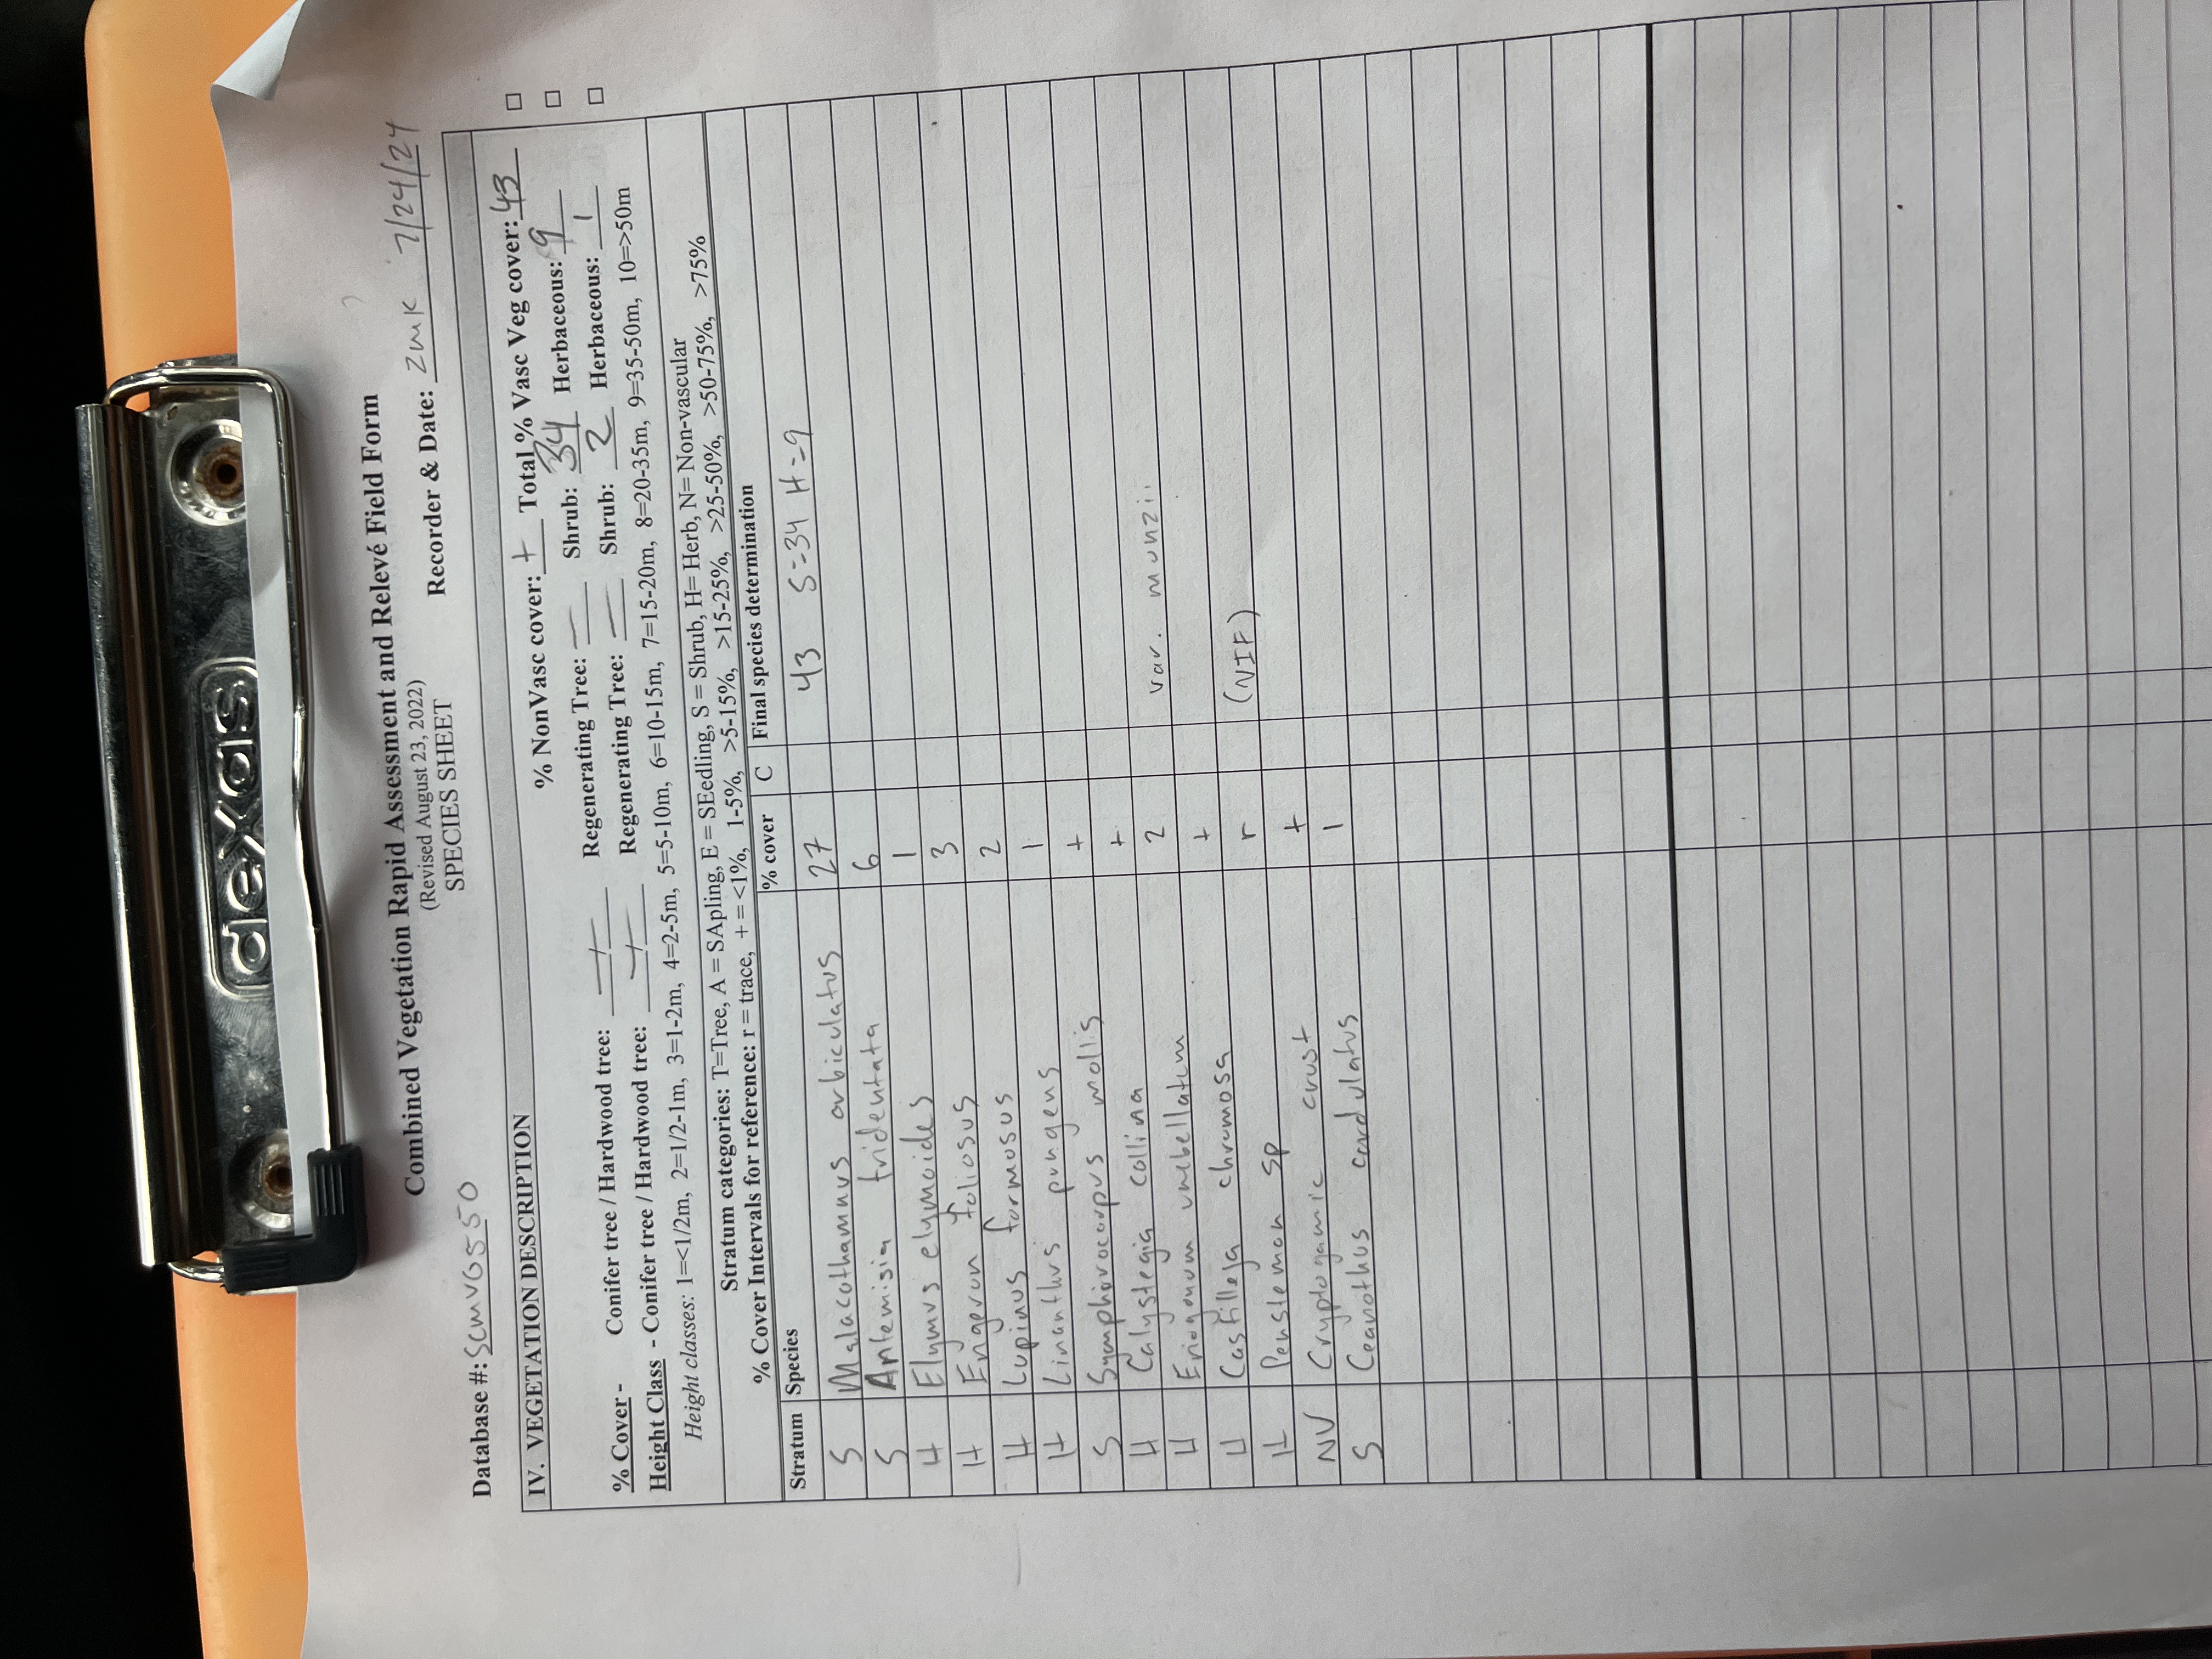 dexas
Combined Vegetation Rapid Assessment and Relevé Field Form
(Revised August 23, 2022)
SPECIES SHEET
Database #: SCMV0550 Recorder & Date: ZMK 7/24/24
IV. VEGETATION DESCRIPTION
% NonVasc cover: + Total % Vasc Veg cover: 43
% Cover - Conifer tree / Hardwood tree: —/— Regenerating Tree: — Shrub: 34 Herbaceous: 9
Height Class - Conifer tree / Hardwood tree: —/— Regenerating Tree: — Shrub: 2 Herbaceous: 1
Height classes: 1=<1/2m, 2=1/2-1m, 3=1-2m, 4=2-5m, 5=5-10m, 6=10-15m, 7=15-20m, 8=20-35m, 9=35-50m, 10=>50m
Stratum categories: T=Tree, A = SApling, E = SEedling, S = Shrub, H= Herb, N= Non-vascular
% Cover Intervals for reference: r = trace, + = <1%, 1-5%, >5-15%, >15-25%, >25-50%, >50-75%, >75%
Stratum Species % cover C Final species determination
S Malacothamnus orbiculatus 27 43 S=34 H=9
S Artemisia tridentata 6
H Elymus elymoides 1
H Erigeron foliosus 3
H Lupinus formosus 2
H Linanthus pungens 1
S Symphorocarpus mollis +
H Calystegia collina +
H Eriogonum umbellatum 2 var. munzii
H Castilleja chromosa +
H Penstemon sp r (NIF)
NV Cryptogamic crust +
S Ceanothus cordulatus 1